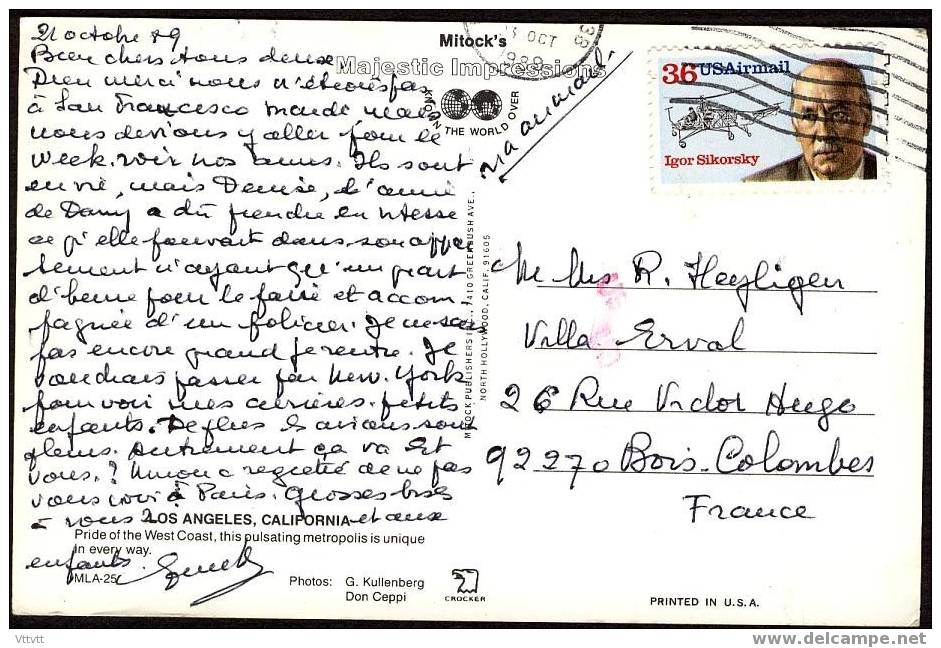 21 octobre 89
Bien chers tous deux
Dieu merci nous n'étions pas
à San Francesco mardi mais
nous devions y aller pour le
week. voir nos amis. Ils sont
en vie, mais Denise, l'amie
de Dany a dû prendre en vitesse
ce qu'elle pouvait dans son appar
tement n'ayant qu'un quart
d'heure pour le faire et accom
pagnée d'un policier. Je ne sais
pas encore quand je rentre. Je
voudrais passer par New. York
pour voir mes arrières. petits
enfants. De plus les avions sont
pleins. Autrement ça va Et
vous.? a regretté de ne pas
vous voir à Paris. Grosses bises
à vous 2 et aux
enfants.
LOS ANGELES, CALIFORNIA
Pride of the West Coast, this pulsating metropolis is unique
in every way.
MLA-25
Photos: G. Kullenberg
Don Ceppi
CROCKER
Mitock's
Majestic Impressions
KNOWN THE WORLD OVER
MITOCK PUBLISHERS INC., 7410 GREENBUSH AVE.,
NORTH HOLLYWOOD, CALIF. 91605
OCT
1989
via air mail
36 USAirmail
Igor Sikorsky
R. Heyligen
Villa Erval
26 Rue Victor Hugo
92270 Bois-Colombes
France
PRINTED IN U.S.A.
Vttvtt
www.delcampe.net